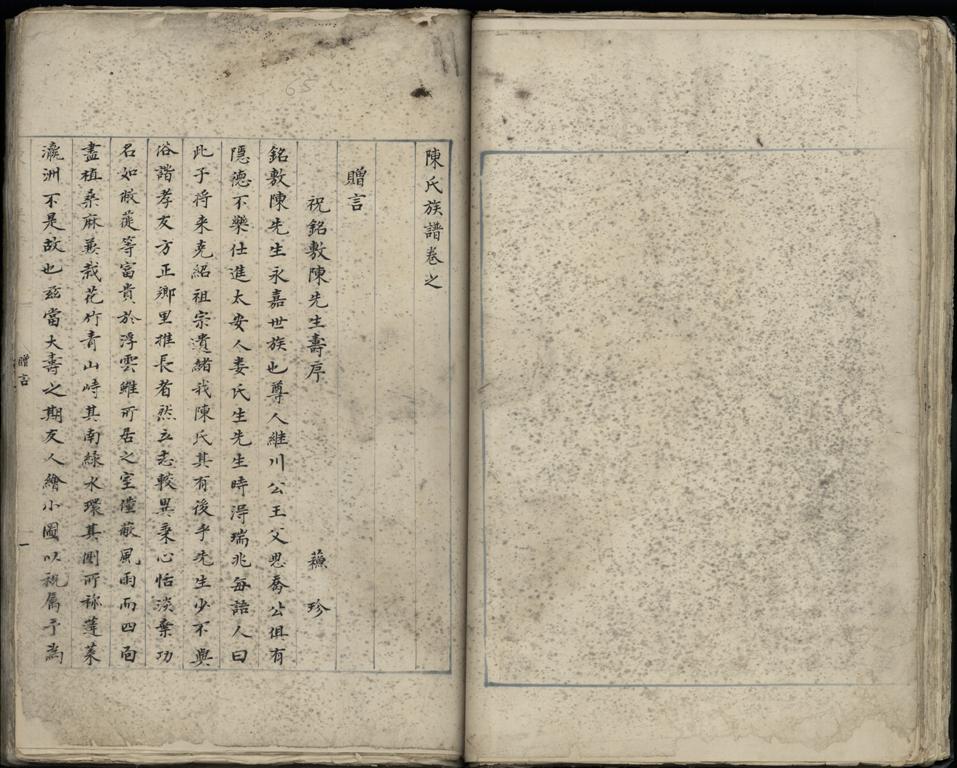 陳氏族譜卷之
贈言
祝銘敷陳先生壽序
蘓珍
銘敷陳先生永嘉世族也尊人維川公王父思喬公俱有
隱德不樂仕進太安人婁氏生先生時得瑞兆每語人曰
此子将来克紹祖宗遺緒我陳氏其有後乎先生少不與
俗諧孝友方正鄉里推長者然立志較異秉心恬淡棄功
名如敝蓰等富貴於浮雲雖所居之室僅蔽風雨而四面
盡植桑麻兼栽花竹青山峙其南緑水環其側所称蓬萊
瀛洲不是故也兹當大壽之期友人繪小圖以祝属予為
贈言
一